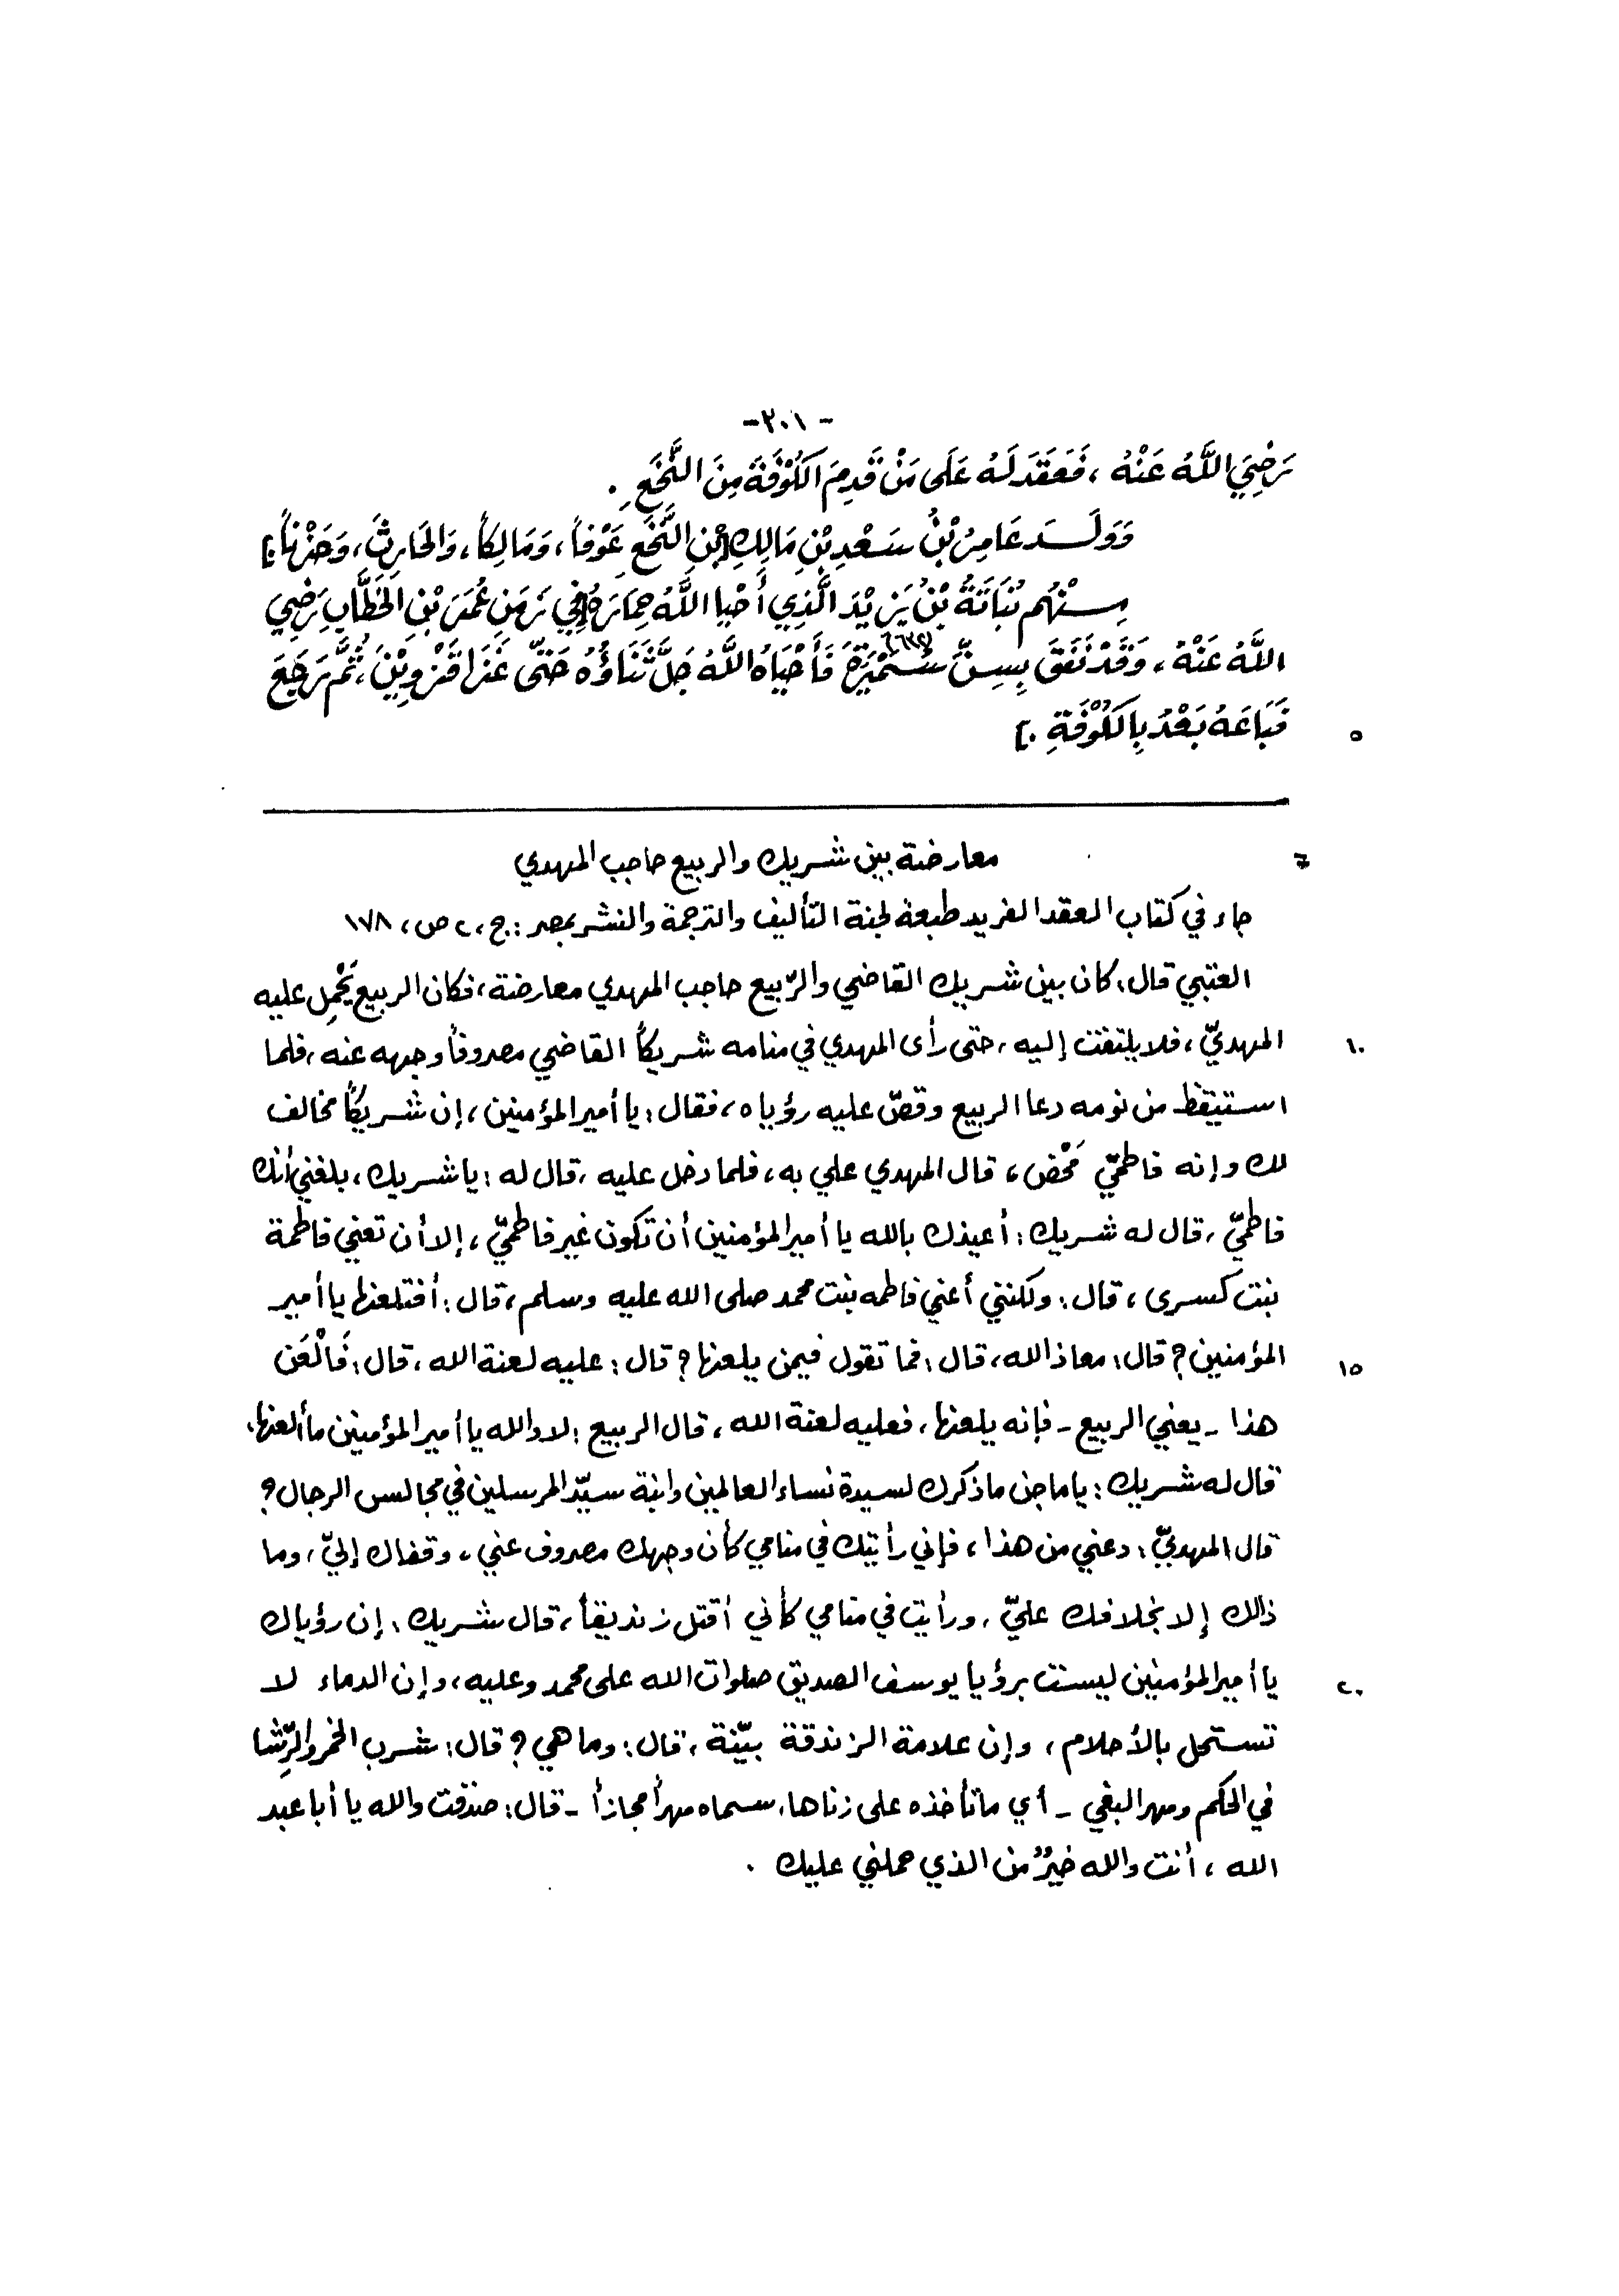 -٢٠١-
رَضِيَ اللَّهُ عَنْهُ، فَعَقَدَ لَهُ عَلَى مَنْ قَدِمَ الكُوْفَةَ مِنَ النَّخَعِ.
وَوَلَدَ عَامِرُ بْنُ سَعْدِ بْنِ مَالِكِ [بْنِ النَّخَعِ عَوْفاً، وَمَالِكاً، وَالحَارِثَ، وَحَزْناً]
مِنْهُم نُبَاتَةُ بْنُ يَزِيْدَ الَّذِي أَحْيا اللَّهُ حِمَارَهُ [فِي زَمَنِ عُمَرَ بْنِ الخَطَّابِ رَضِيَ
اللَّهُ عَنْهُ، وَقَدْ نَفَقَ بِسِنِّ سُمَيْرَةَ فَأَحْيَاهُ اللَّهُ جَلَّ ثَنَاؤُهُ حَتَّى غَزَا قَزْوِيْنَ، ثُمَّ رَجَعَ
٥ فَبَاعَهُ بَعْدُ بِالكُوْفَةِ.]
٦ معارضة بين شريك والربيع حاجب المهدي
جاء في كتاب العقد الفريد طبعة لجنة التأليف والترجمة والنشر بمصر: ج، ٢ ص، ١٧٨
العتبي قال: كان بين شريك القاضي والرّبيع حاجب المهدي معارضة، فكان الربيع يَحْمِل عليه
١٠ المهديّ، فلا يلتفت إليه، حتى رأى المهدي في منامه شريكاً القاضي مصروفاً وجهه عنه، فلما
استيقظ من نومه دعا الربيع وقصّ عليه رؤياه، فقال: يا أمير المؤمنين، إن شريكاً مخالف
لك وإنه فاطميّ مَحْض، قال المهدي علي به، فلما دخل عليه، قال له: يا شريك، بلغني أنك
فاطميّ، قال له شريك: أعيذك بالله يا أمير المؤمنين أن تكون غير فاطميّ، إلا أن تعني فاطمة
بنت كسرى، قال: ولكنني أعني فاطمه بنت محمد صلى الله عليه وسلم، قال: أفتلعنها يا أمير
١٥ المؤمنين؟ قال: معاذ الله، قال: فما تقول فيمن يلعنها؟ قال: عليه لعنة الله، قال: فَالْعَن
هذا - يعني الربيع - فإنه يلعنها، فعليه لعنة الله، قال الربيع: لا والله يا أمير المؤمنين ما ألعنها،
قال له شريك: يا ماجن ما ذكرك لسيدة نساء العالمين وابنة سيّد المرسلين في مجالس الرجال؟
قال المهديّ: دعني من هذا، فإني رأيتك في منامي كأن وجهك مصروف عني، وقفاك إليّ، وما
ذلك إلا بخلافك عليّ، ورأيت في منامي كأني أقتل زنديقاً، قال شريك: إن رؤياك
٢٠ يا أمير المؤمنين ليست برؤيا يوسف الصديق صلوات الله على محمد وعليه، وإن الدماء لا
تستحل بالأحلام، وإن علامة الزندقة بيّنة، قال: وما هي؟ قال: شرب الخمر والرِّشا
في الحكم ومهر البغي - أي ما تأخذه على زناها، سماه مهراً مجازاً - قال: صدقت والله يا أبا عبد
الله، أنت والله خيرٌ من الذي حملني عليك.